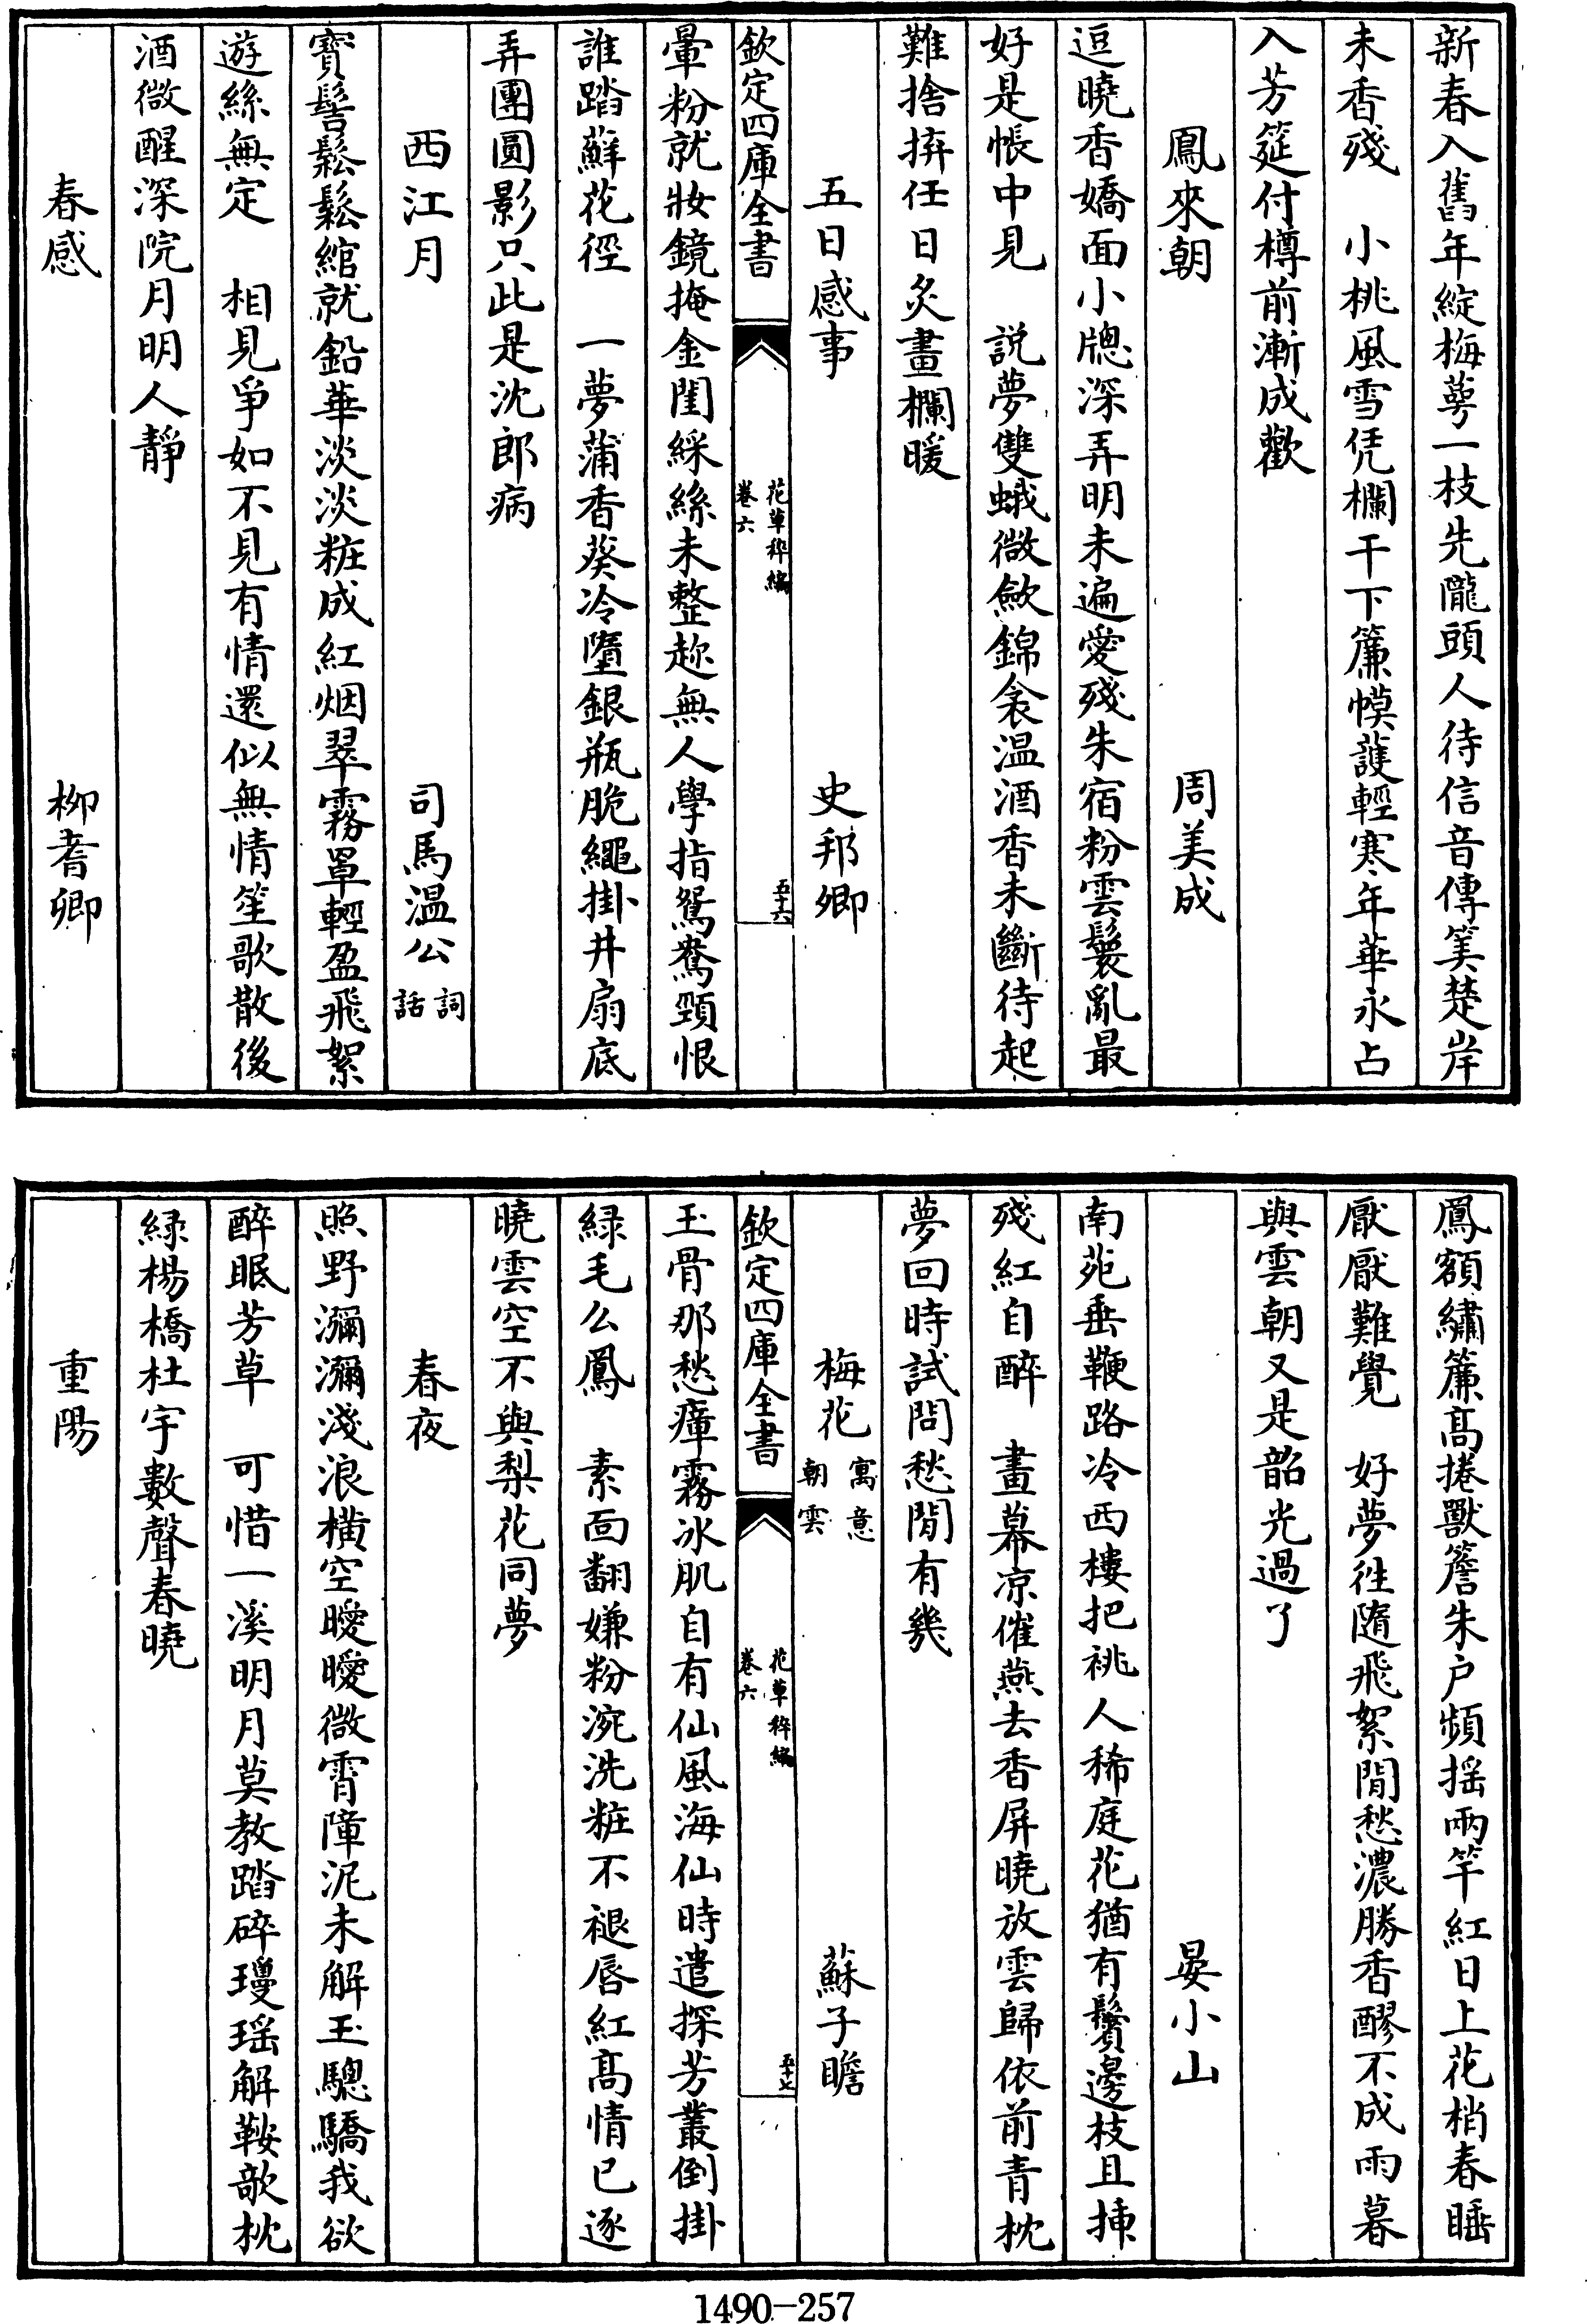 新春入舊年綻梅萼一枝先隴頭人待信音傳筭楚岸
未香殘　小桃風雪凭欄干下簾幙護輕寒年華永占
入芳筵付樽前漸成歡
鳳來朝　周美成
逗曉香嬌面小牕深弄明未遍愛殘朱宿粉雲鬟亂最
好是帳中見　説夢雙蛾微斂錦衾温酒香未斷待起
難捨拚任日炙畫欄暖
五日感事　史邦卿
欽定四庫全書
花草稡編
卷六
五十六
暈粉就妝鏡掩金閨綵絲未整趂無人學指鴛鴦頸恨
誰踏蘚花徑　一夢蒲香葵冷墮銀瓶脆繩掛井扇底
弄團圓影只此是沈郎病
西江月　司馬温公詞話
寳髻鬆鬆綰就鉛華淡淡粧成紅烟翠霧罩輕盈飛絮
遊絲無定　相見爭如不見有情還似無情笙歌散後
酒微醒深院月明人靜
春感　柳耆卿
鳳額繡簾髙捲獸簷朱户頻摇兩竿紅日上花梢春睡
厭厭難覺　好夢徃隨飛絮閒愁濃勝香醪不成雨暮
與雲朝又是韶光過了
晏小山
南苑垂鞭路冷西樓把袂人稀庭花猶有鬢邊枝且揷
殘紅自醉　畫幕凉催燕去香屏曉放雲歸依前青枕
夢回時試問愁閒有幾
梅花寓意朝雲　蘇子瞻
欽定四庫全書
花草稡編
卷六
五十七
玉骨那愁瘴霧冰肌自有仙風海仙時遣探芳叢倒掛
緑毛么鳳　素面翻嫌粉涴洗粧不褪唇紅髙情已逐
曉雲空不與梨花同夢
春夜
照野瀰瀰淺浪橫空曖曖微霄障泥未解玉驄驕我欲
醉眠芳草　可惜一溪明月莫教踏碎瓊瑶解鞍欹枕
緑楊橋杜宇數聲春曉
重陽
1490-257